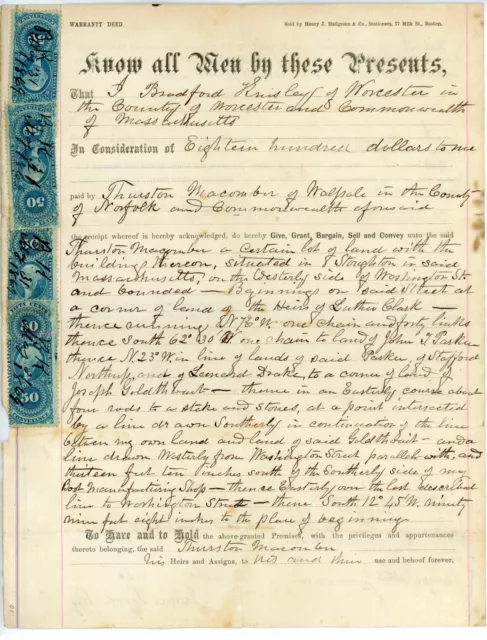 WARRANTY DEED.
Sold by Henry J. Hallgreen & Co., Stationers, 77 Milk St., Boston.
Know all Men by these Presents,
That I Bradford Kinsley of Worcester in
the County of Worcester and Commonwealth
of Massachusetts
In Consideration of Eighteen hundred dollars to me
paid by Thurston Macomber of Walpole in the County
of Norfolk and Commonwealth aforesaid
the receipt whereof is hereby acknowledged, do hereby Give, Grant, Bargain, Sell and Convey unto the said
Thurston Macomber a certain lot of land with the
buildings thereon, situated in Stoughton in said
Massachusetts, on the Westerly side of Washington St.
and bounded — Beginning on said Street at
a corner of land of the Heirs of Luther Clark —
thence running N 76° W. one chain and forty links
thence South 62° 30' one chain to land of John T Parker
thence N. 23° W in line of lands of said Parker, of Stafford
Northup and of Leonard Drake, to a corner of land of
Joseph Goldthwait — thence in an Easterly course about
four rods to a stake and stones, at a point intersected
by a line drawn Southerly in continuation of the line
between my own land and land of said Goldthwait — and a
line drawn Westerly from Washington Street parallel with, and
thirteen feet ten inches south of the Southerly side of my
Boot Manufacturing Shop — thence Easterly over the last described
line to Washington Street — thence South 12° 45' W. ninety
nine feet eight inches to the place of beginning
To Have and to Hold the above-granted Premises, with the privileges and appurtenances
thereto belonging, the said Thurston Macomber
his Heirs and Assigns, to his and their use and behoof forever,
50
50